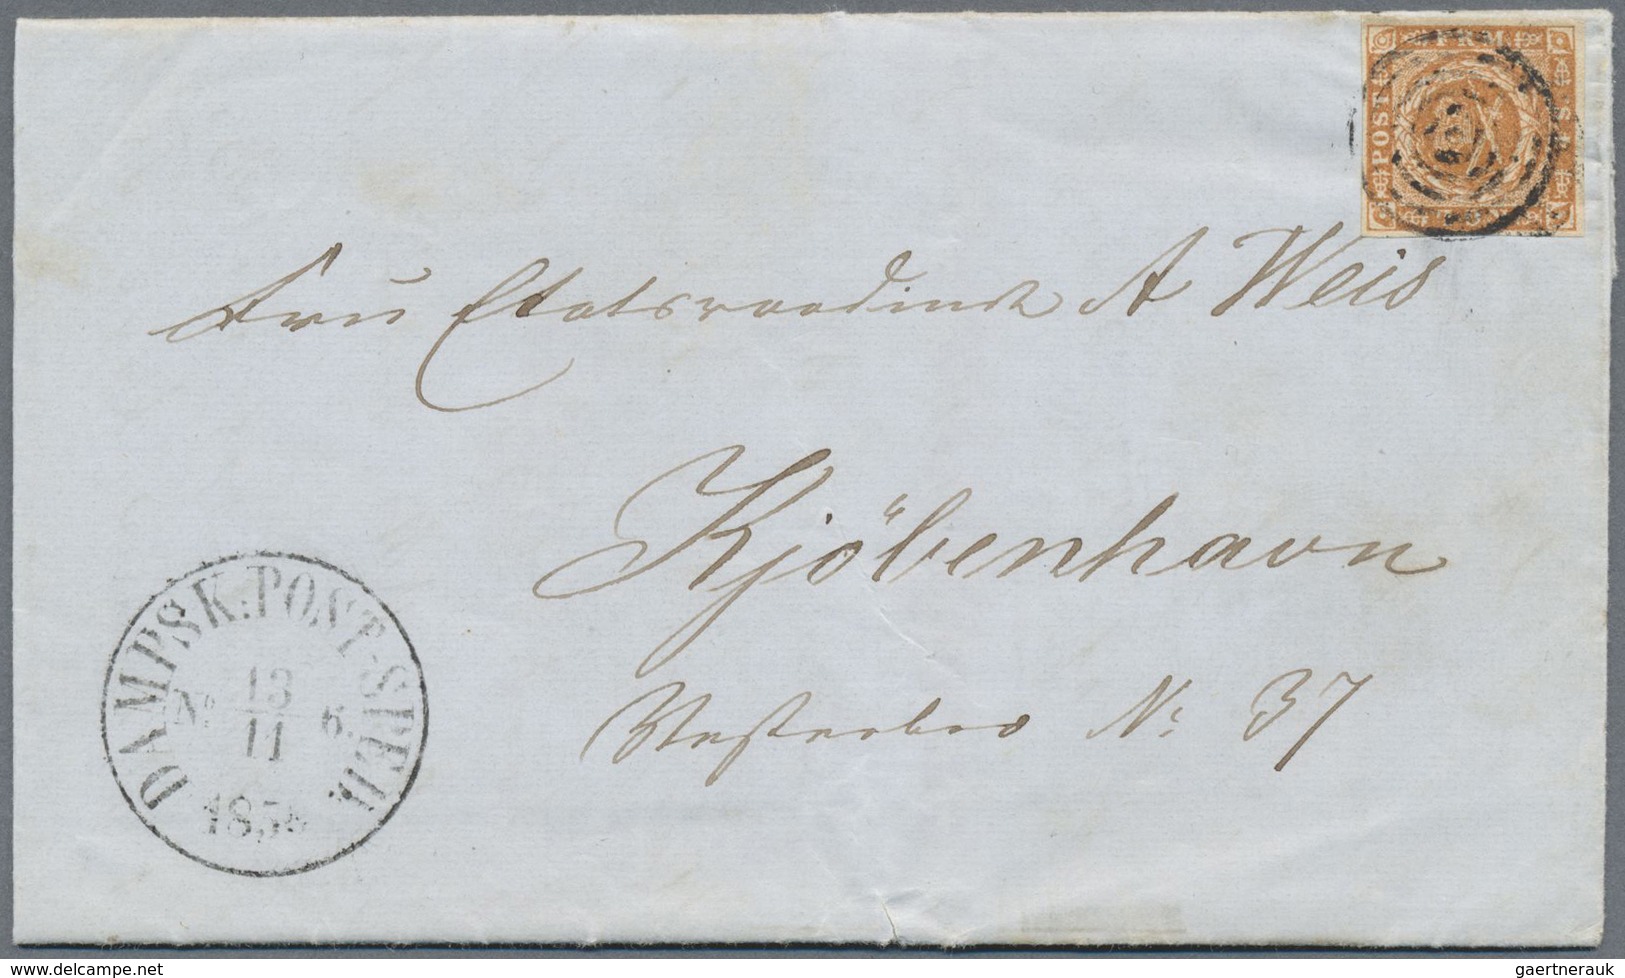 FRM
POSTF
Fru Etatsraadinde A Weis
Kjöbenhavn
Westerbro No 37
DAMPSK:POST-SPED.
No 13 6.
11
1854
www.delcampe.net
gaertnerauk